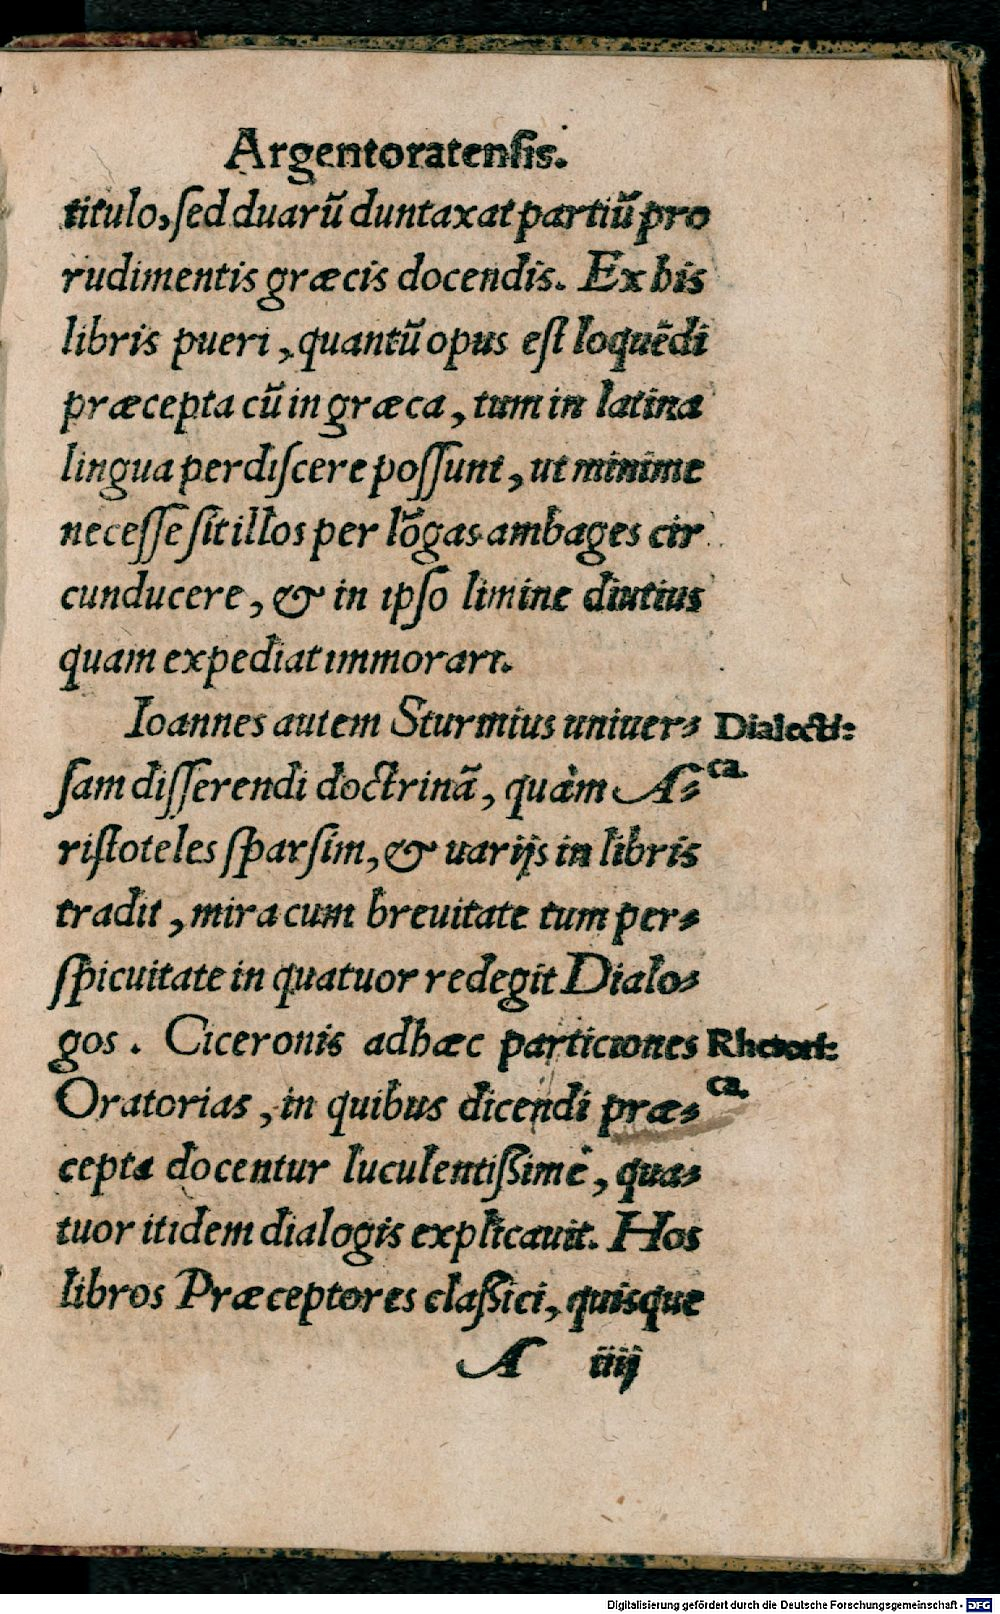 Argentoratensis.
titulo, sed duarũ duntaxat partiũ pro
rudimentis græcis docendis. Ex his
libris pueri, quantũ opus est loquẽdi
præcepta cũ in græca, tum in latina
lingua perdiscere possunt, ut minime
necesse sit illos per lõgas ambages cir
cunducere, & in ipso limine diutius
quam expediat immorari.
Ioannes autem Sturmius uniuer⸗ Dialecti⸗
sam disserendi doctrinã, quàm A⸗ ca.
ristoteles sparsim, & uarijs in libris
tradit, mira cum breuitate tum per⸗
spicuitate in quatuor redegit Dialo⸗
gos. Ciceronis adhæc particiones Rhetori⸗
Oratorias, in quibus dicendi præ⸗ ca.
cepta docentur luculentißimè, qua⸗
tuor itidem dialogis explicauit. Hos
libros Præceptores claßici, quisque
A iiij
Digitalisierung gefördert durch die Deutsche Forschungsgemeinschaft - DFG